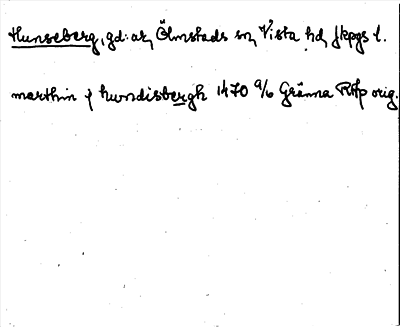 Hunseberg, gd: ar, Ölmstads sn, Vista hd, Jkpgs l.
marthin j hundisbergh 1470 9/6 Gränna RAp orig.